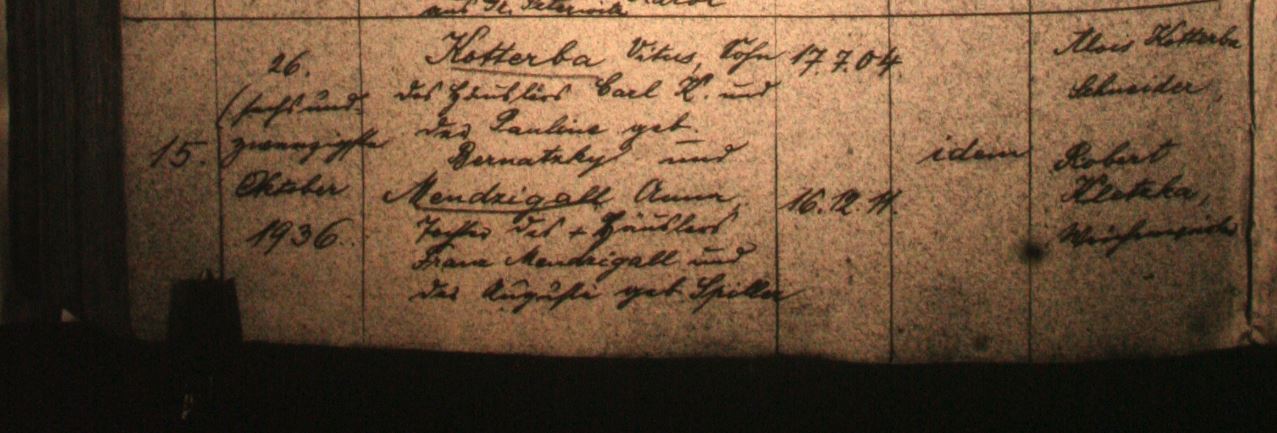 aus Gr. Peterwitz
26.
(sechs und
zwanzigste
15.
Oktober
1936.
Kotterba Vitus, Sohn
des Häuslers Carl K. und
der Pauline geb.
Bernatzky und
Mendzigall Anna,
Tochter des + Häuslers
Franz Mendzigall und
der Auguste geb. Spiller
17.7.04.
16.12.11.
idem
Alois Kotterba
Schneider,
Robert
Kletzka,